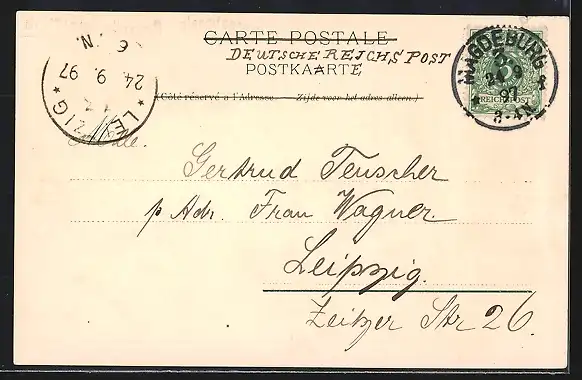 CARTE POSTALE
DEUTSCHE REICHS POST
POSTKAARTE
(Côté réservé a l'Adresse. — Zijde voor het adres alleen.)
MAGDEBURG
5
24 9
97
3-4N
REICHSPOST
LEIPZIG
24.9.97
6 N.
Mlle.
Gertrud Teuscher
p Adr. Frau Wagner.
Leipzig.
Zeitzer Str 26.